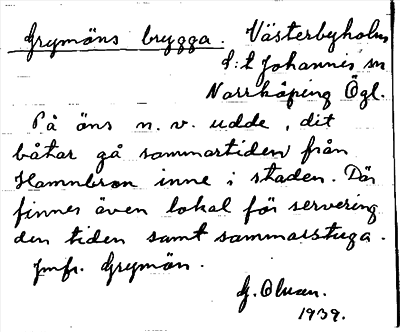 Grymöns brygga. Västerbyholm
S:t Johannis sn
Norrköping Ögl.
På öns n. v. udde, dit
båtar gå sommartiden från
Hamnbron inne i staden. Där
finnes även lokal för servering
den tiden samt sommarstuga.
Jmfr. Grymön.
G. Olsson.
1939.